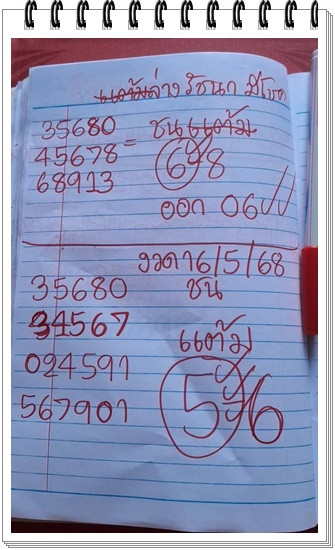 แต้มล่าง รัชนก มีโชค
35680 ชนแต้ม
45678 = 6 8
68913
ออก 06
งวด 16/5/68
35680 ชน
34567 แต้ม
024591 5 6
567901